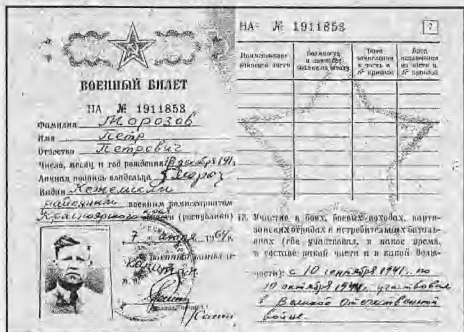 ВОЕННЫЙ БИЛЕТ
НА № 1911853
Фамилия Морозов
Имя Петр
Отчество Петрович
Число, месяц и год рождения 18 декабря 191
Личная подпись владельца
Выдан Кежемским
районным военным комиссариатом
Красноярского края (республики)
7 1964г.
Капитан
НА № 1911853 7
Наименование воинской части
Должность
Дата зачисления в часть и № приказа
Дата исключения из части и № приказа
13. Участие в боях, боевых походах, парти-
занских отрядах и истребительных баталь-
онах (где участвовал, в какое время,
в составе какой части и в какой долж-
ности) с 10 сентября 1941. по
10 октября 1944. участвовал
в Великой Отечественной
войне.